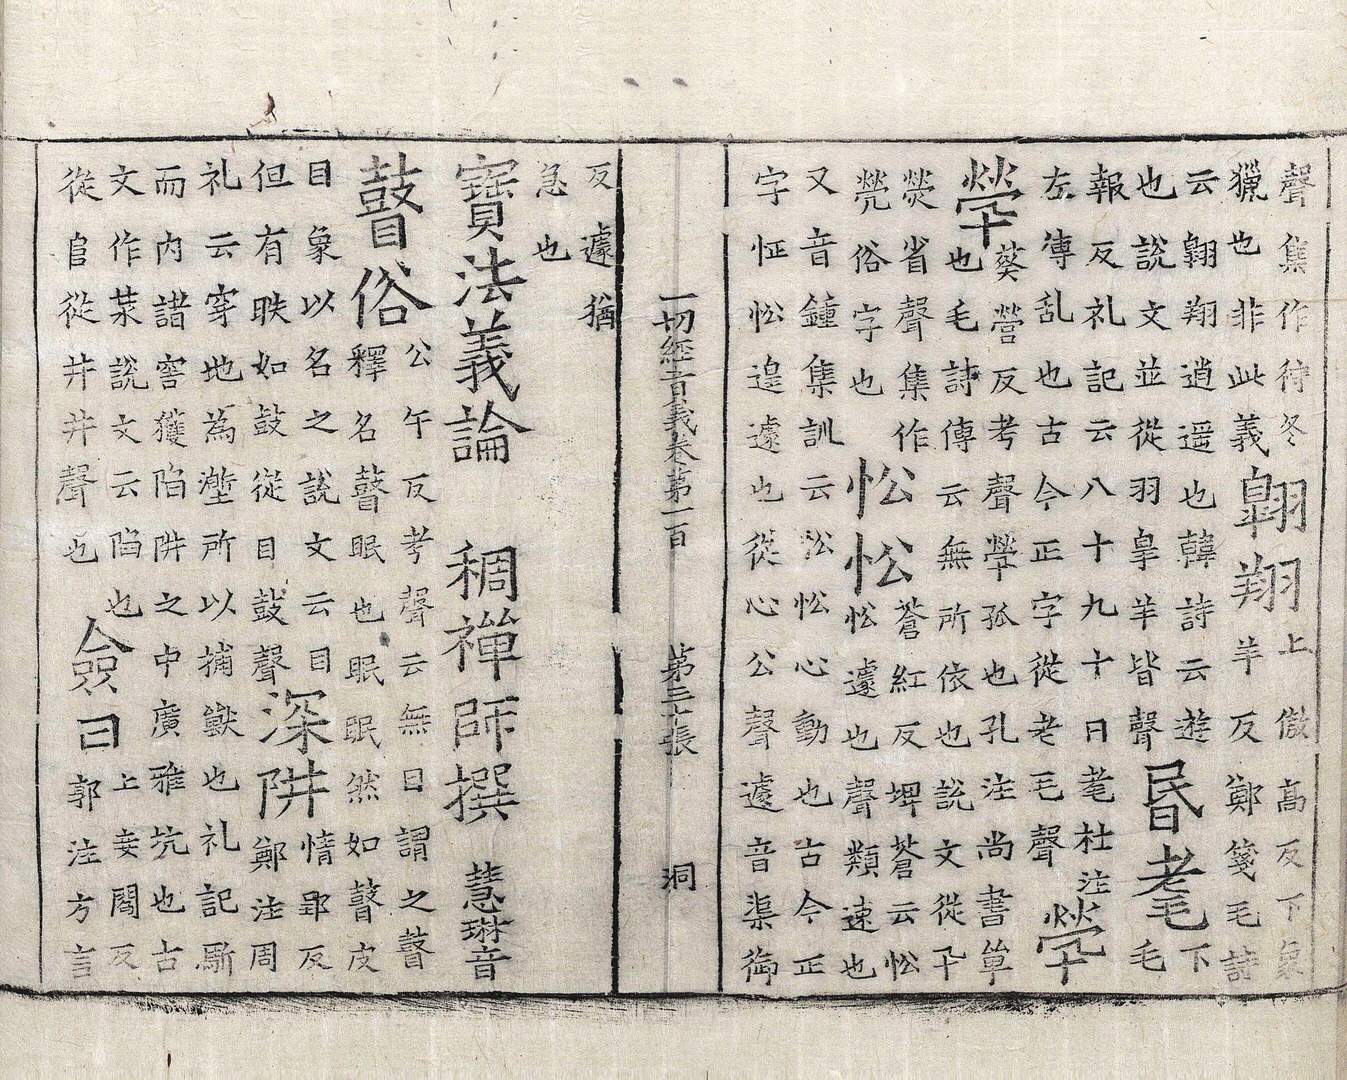 聲集作待冬
獵也非此義
翺翔
上傲高反下象
羊反鄭箋毛詩
云翺翔逍遥也韓詩云遊
也說文並從羽皐羊皆聲
昬耄
下
毛
報反礼記云八十九十曰耄杜注
左傳乱也古今正字從老毛聲
煢
煢
葵營反考聲煢孤也孔注尚書单
也毛詩傳云無所依也說文從卂
熒省聲集作
㷀俗字也
忪忪
蒼紅反埤蒼云忪
忪遽也聲類速也
又音鐘集訓云忪忪心動也古今正
字怔忪遑遽也從心公聲遽音渠御
一切經音義卷第一百 第三十張 洞
反遽猶
急也
寶法義論 稠禪師撰 慧琳音
瞽俗
公午反考聲云無目謂之瞽
釋名瞽眠也眠眠然如瞽皮
目象以名之說文云目
但有眹如鼓從目鼓聲
深阱
情郢反
鄭注周
礼云穿地為塹所以捕獸也礼記斷
而内諸罟獲陷阱之中廣雅坑也古
文作汬說文云陷也
從𨸏從井井聲也
僉曰
上妾閻反
郭注方言